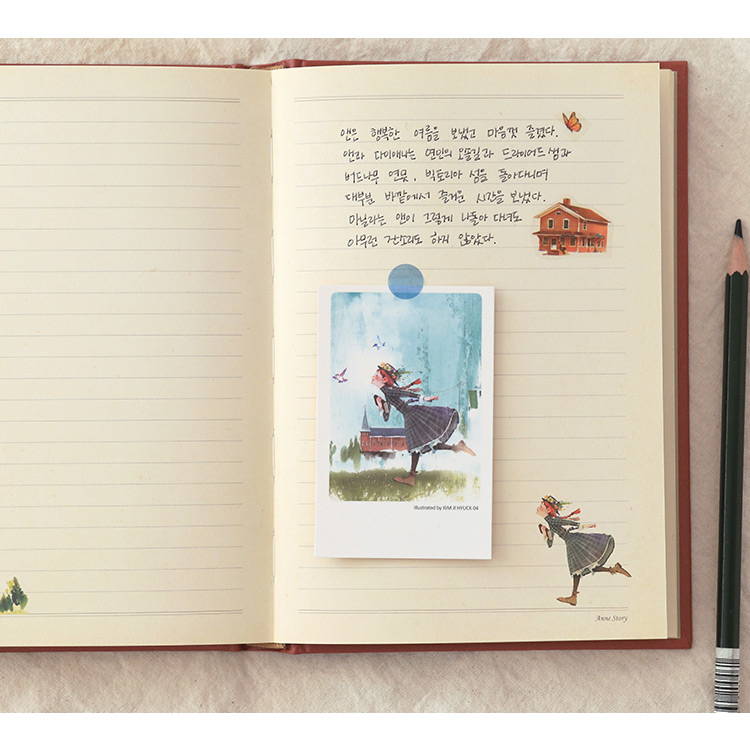 앤은 행복한 여름을 보냈고 마음껏 즐겼다.
앤과 다이애나는 연인의 오솔길과 드라이어드 샘과
버드나무 연못, 빅토리아 섬을 돌아다니며
대부분 바깥에서 즐거운 시간을 보냈다.
마닐라는 앤이 그렇게 나돌아 다녀도
아무런 잔소리도 하지 않았다.
illustrated by KIM JI HYUCK 04
Anne Story